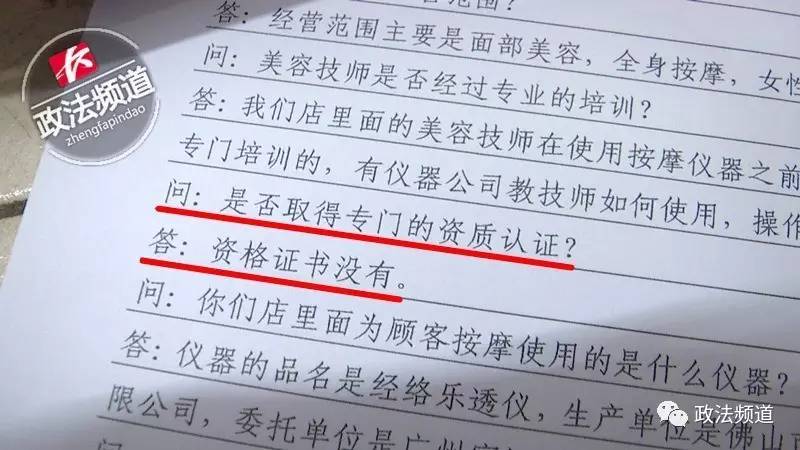 政法频道
zhengfapindao
范围？
答：经营范围主要是面部美容，全身按摩，女性
问：美容技师是否经过专业的培训？
答：我们店里面的美容技师在使用按摩仪器之前
专门培训的，有仪器公司教技师如何使用，操作
问：是否取得专门的资质认证？
答：资格证书没有。
问：你们店里面为顾客按摩使用的是什么仪器？
答：仪器的品名是经络乐透仪，生产单位是佛山
限公司，委托单位是广州
问：
政法频道